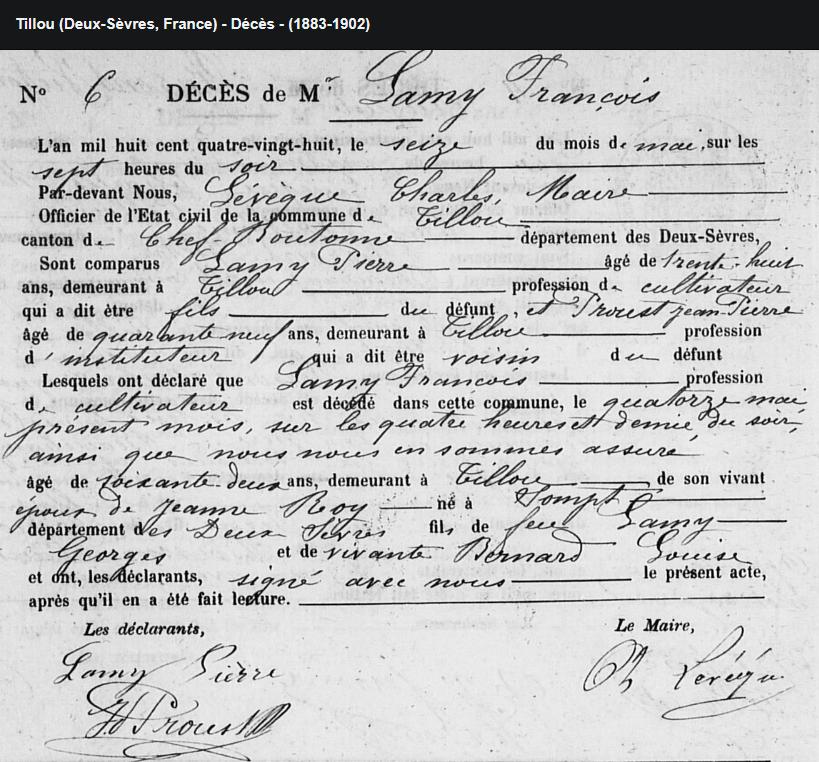 Tillou (Deux-Sèvres, France) - Décès - (1883-1902)
No 6 DÉCÈS de Mr Lamy François
L'an mil huit cent quatre-vingt-huit, le seize du mois de mai, sur les
sept heures du soir
Par-devant Nous, Lévèque Charles, Maire
Officier de l'Etat civil de la commune de Tillou
canton de Chef-Boutonne département des Deux-Sèvres,
Sont comparus Lamy Pierre âgé de trente-huit
ans, demeurant à Tillou profession de cultivateur
qui a dit être fils du défunt, et Proust Jean-Pierre
âgé de quarante neuf ans, demeurant à Tillou profession
d'instituteur qui a dit être voisin du défunt
Lesquels ont déclaré que Lamy François profession
de cultivateur est décédé dans cette commune, le quatorze mai
présent mois, sur les quatre heures et demie du soir,
ainsi que nous nous en sommes assuré
âgé de soixante-deux ans, demeurant à Tillou de son vivant
époux de Jeanne Roy né à Sompt
département des Deux Sèvres fils de feu Lamy
Georges et de vivante Bernard Louise
et ont, les déclarants, signé avec nous le présent acte,
après qu'il en a été fait lecture.
Les déclarants, Le Maire,
Lamy Pierre Ch Levèque
Proust